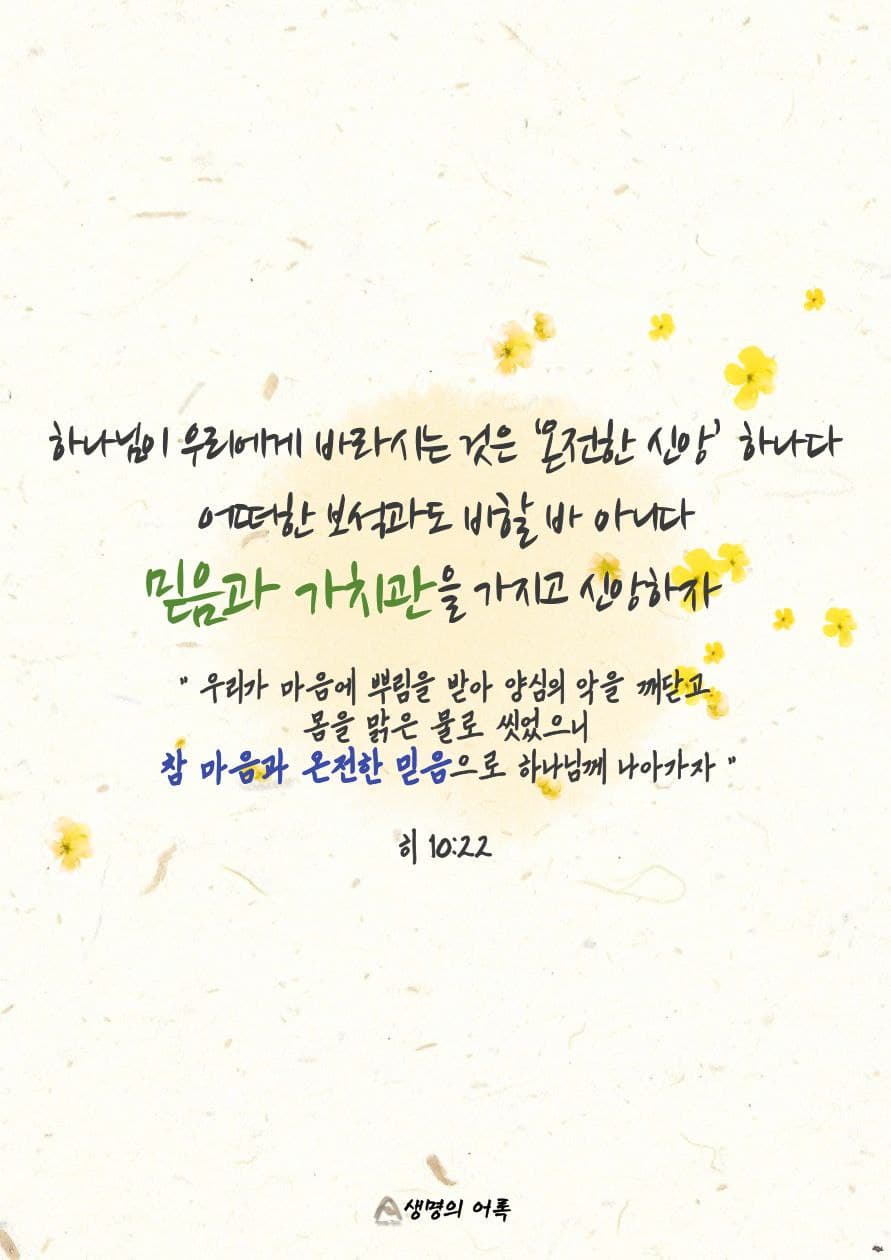 하나님이 우리에게 바라시는 것은 '온전한 신앙' 하나다
어떠한 보석과도 비할 바 아니다
믿음과 가치관을 가지고 신앙하자
" 우리가 마음에 뿌림을 받아 양심의 악을 깨닫고
몸을 맑은 물로 씻었으니
참 마음과 온전한 믿음으로 하나님께 나아가자 "
히 10:22
생명의 어록